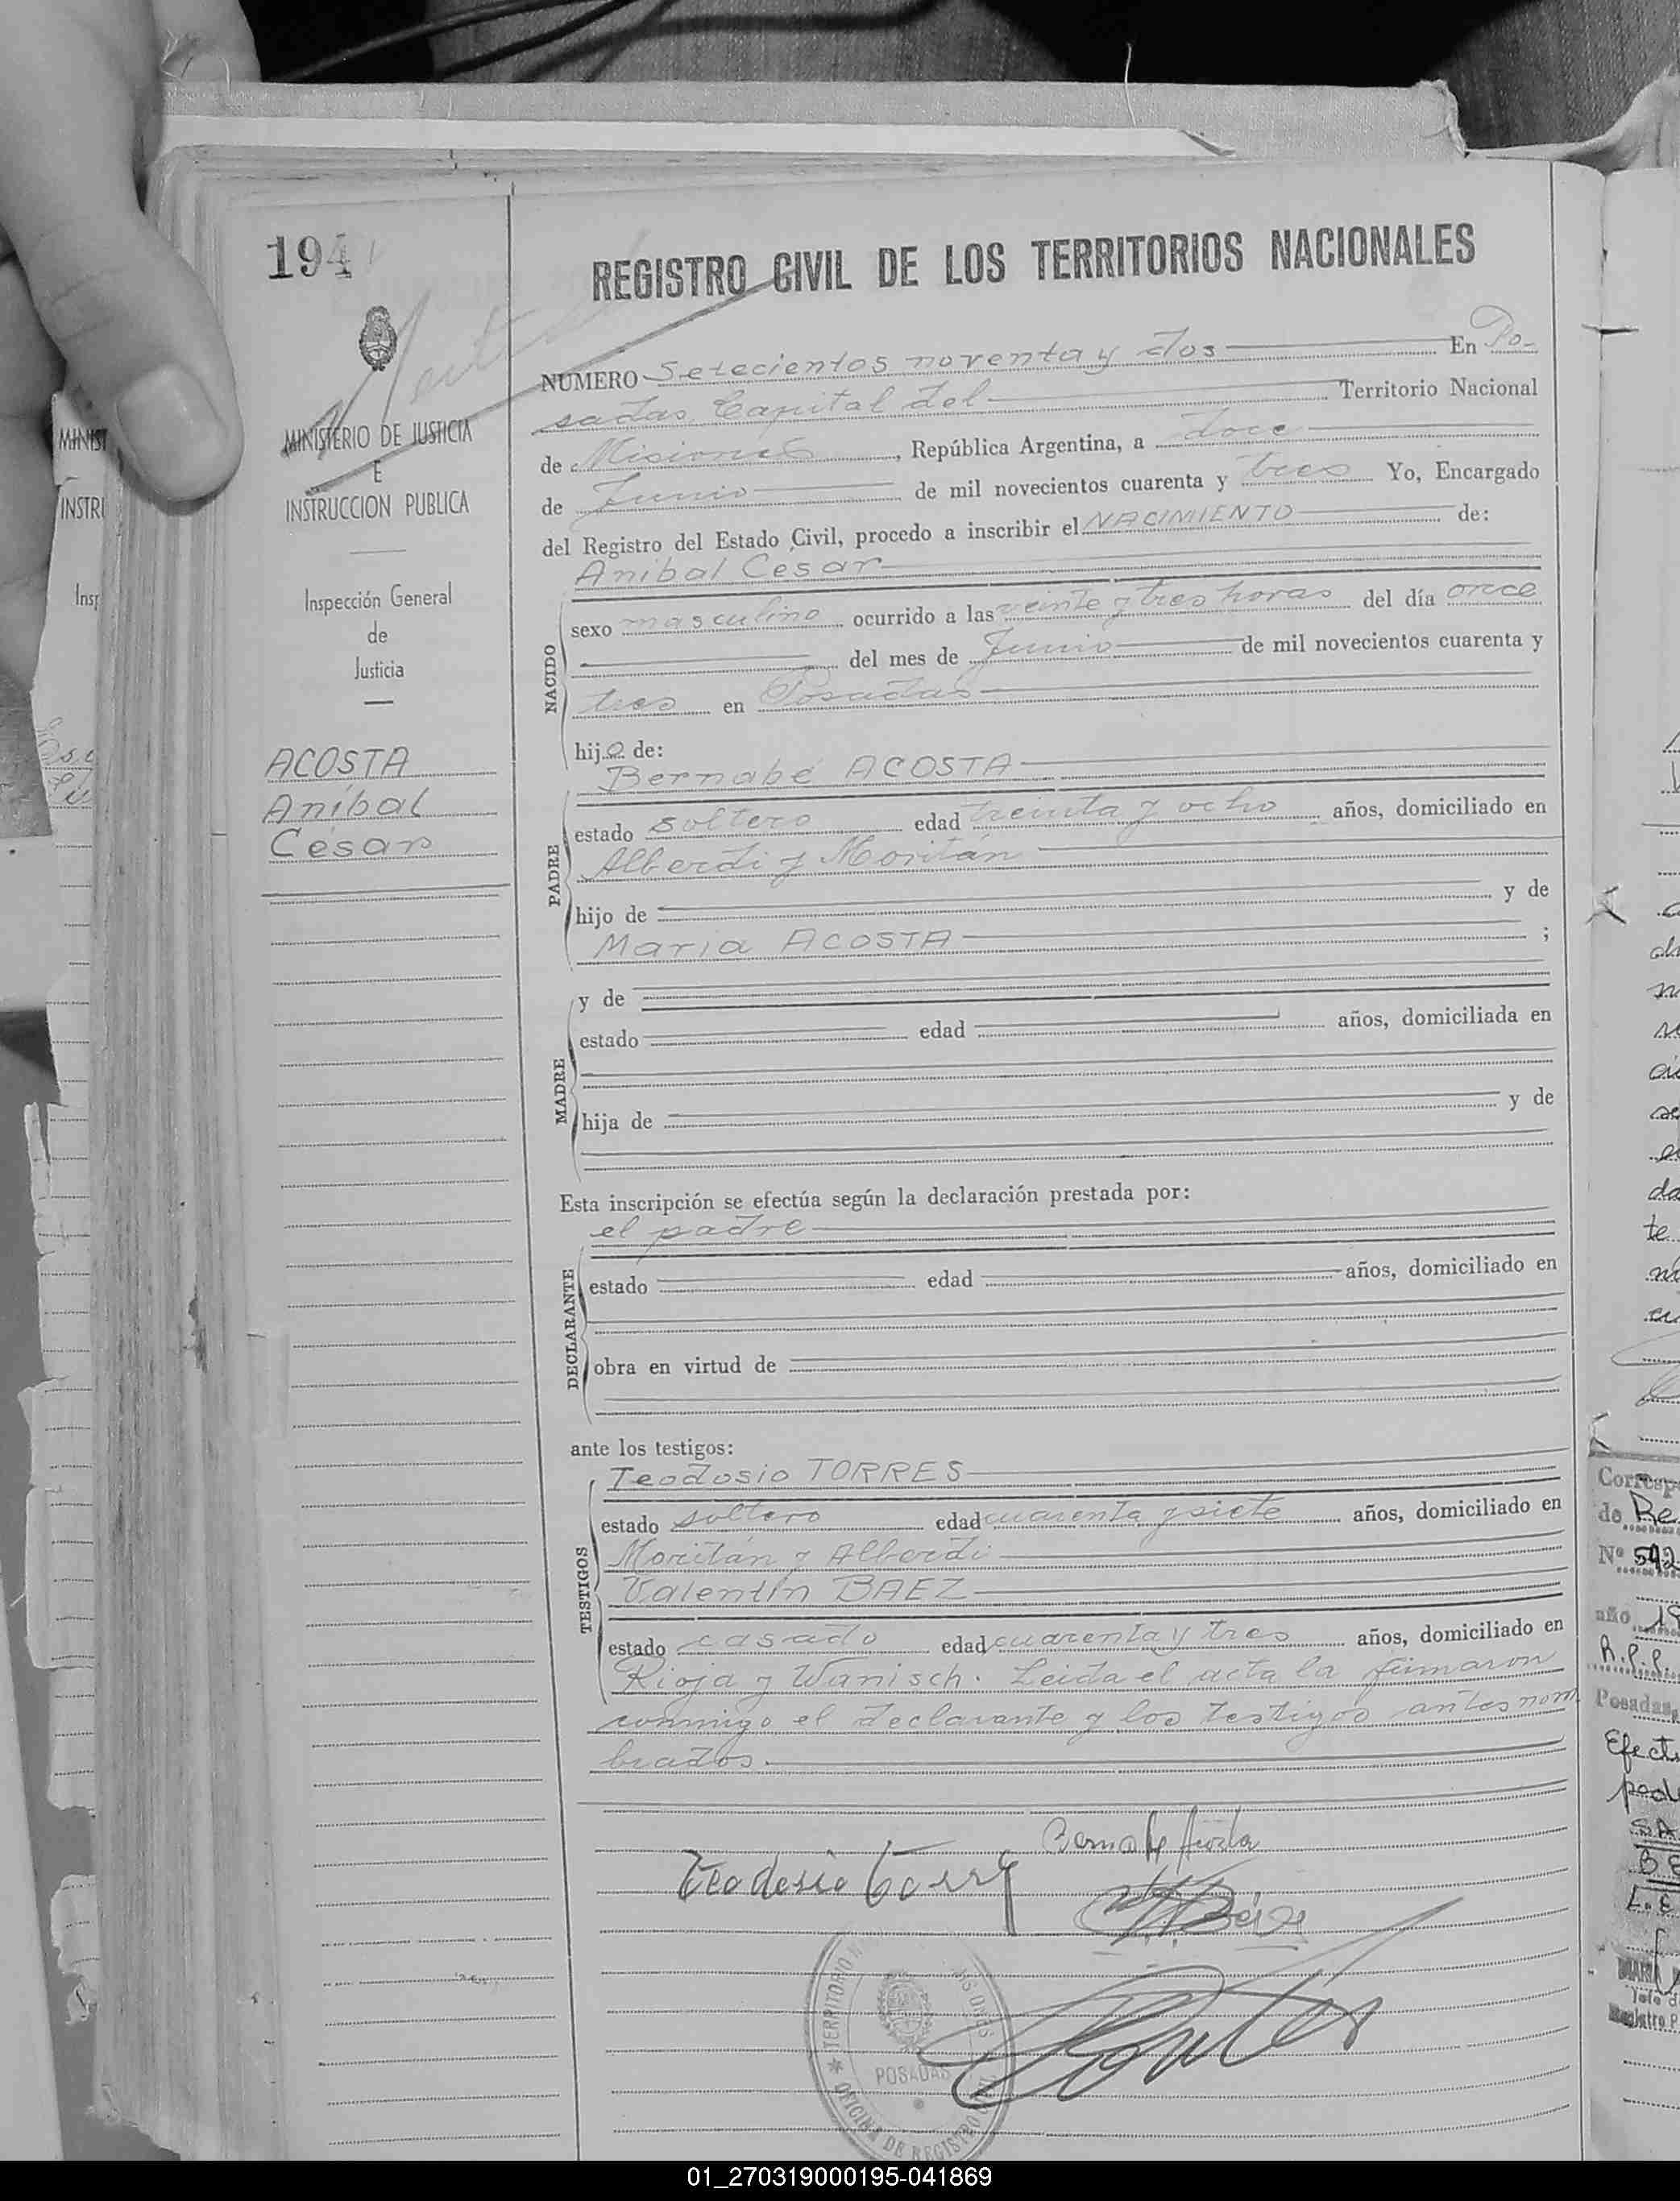 194
REGISTRO CIVIL DE LOS TERRITORIOS NACIONALES
MINISTERIO DE JUSTICIA
E
INSTRUCCION PUBLICA
Inspección General
de
Justicia
ACOSTA
Aníbal
César
NUMERO Setecientos noventa y dos En Po-
sadas, Capital del Territorio Nacional
de Misiones, República Argentina, a doce
de Junio de mil novecientos cuarenta y tres Yo, Encargado
del Registro del Estado Civil, procedo a inscribir el NACIMIENTO de:
Anibal Cesar
NACIDO
sexo masculino ocurrido a las veinte y tres horas del día once
del mes de Junio de mil novecientos cuarenta y
tres en Posadas
hijo de:
Bernabé ACOSTA
PADRE
estado soltero edad treinta y ocho años, domiciliado en
Alberdi y Moritán
hijo de y de
Maria ACOSTA ;
MADRE
y de
estado edad años, domiciliada en
hija de y de
Esta inscripción se efectúa según la declaración prestada por:
el padre
DECLARANTE
estado edad años, domiciliado en
obra en virtud de
ante los testigos:
TESTIGOS
Teodosio TORRES
estado soltero edad cuarenta y siete años, domiciliado en
Moritán y Alberdi
Valentín BAEZ
estado casado edad cuarenta y tres años, domiciliado en
Rioja y Wanisch. Leida el acta la firmaron
conmigo el declarante y los testigos antes nom
brados.
Bernabe Acosta
Teodosio Torres
Báez
TERRITORIO
POSADAS
OFICINA DE REGISTRO
MINIST
INSTRU
Insp
Corresp
de Be
Nº 592
año 19
R.P.P.
Posadas,
Efect
01_270319000195-041869